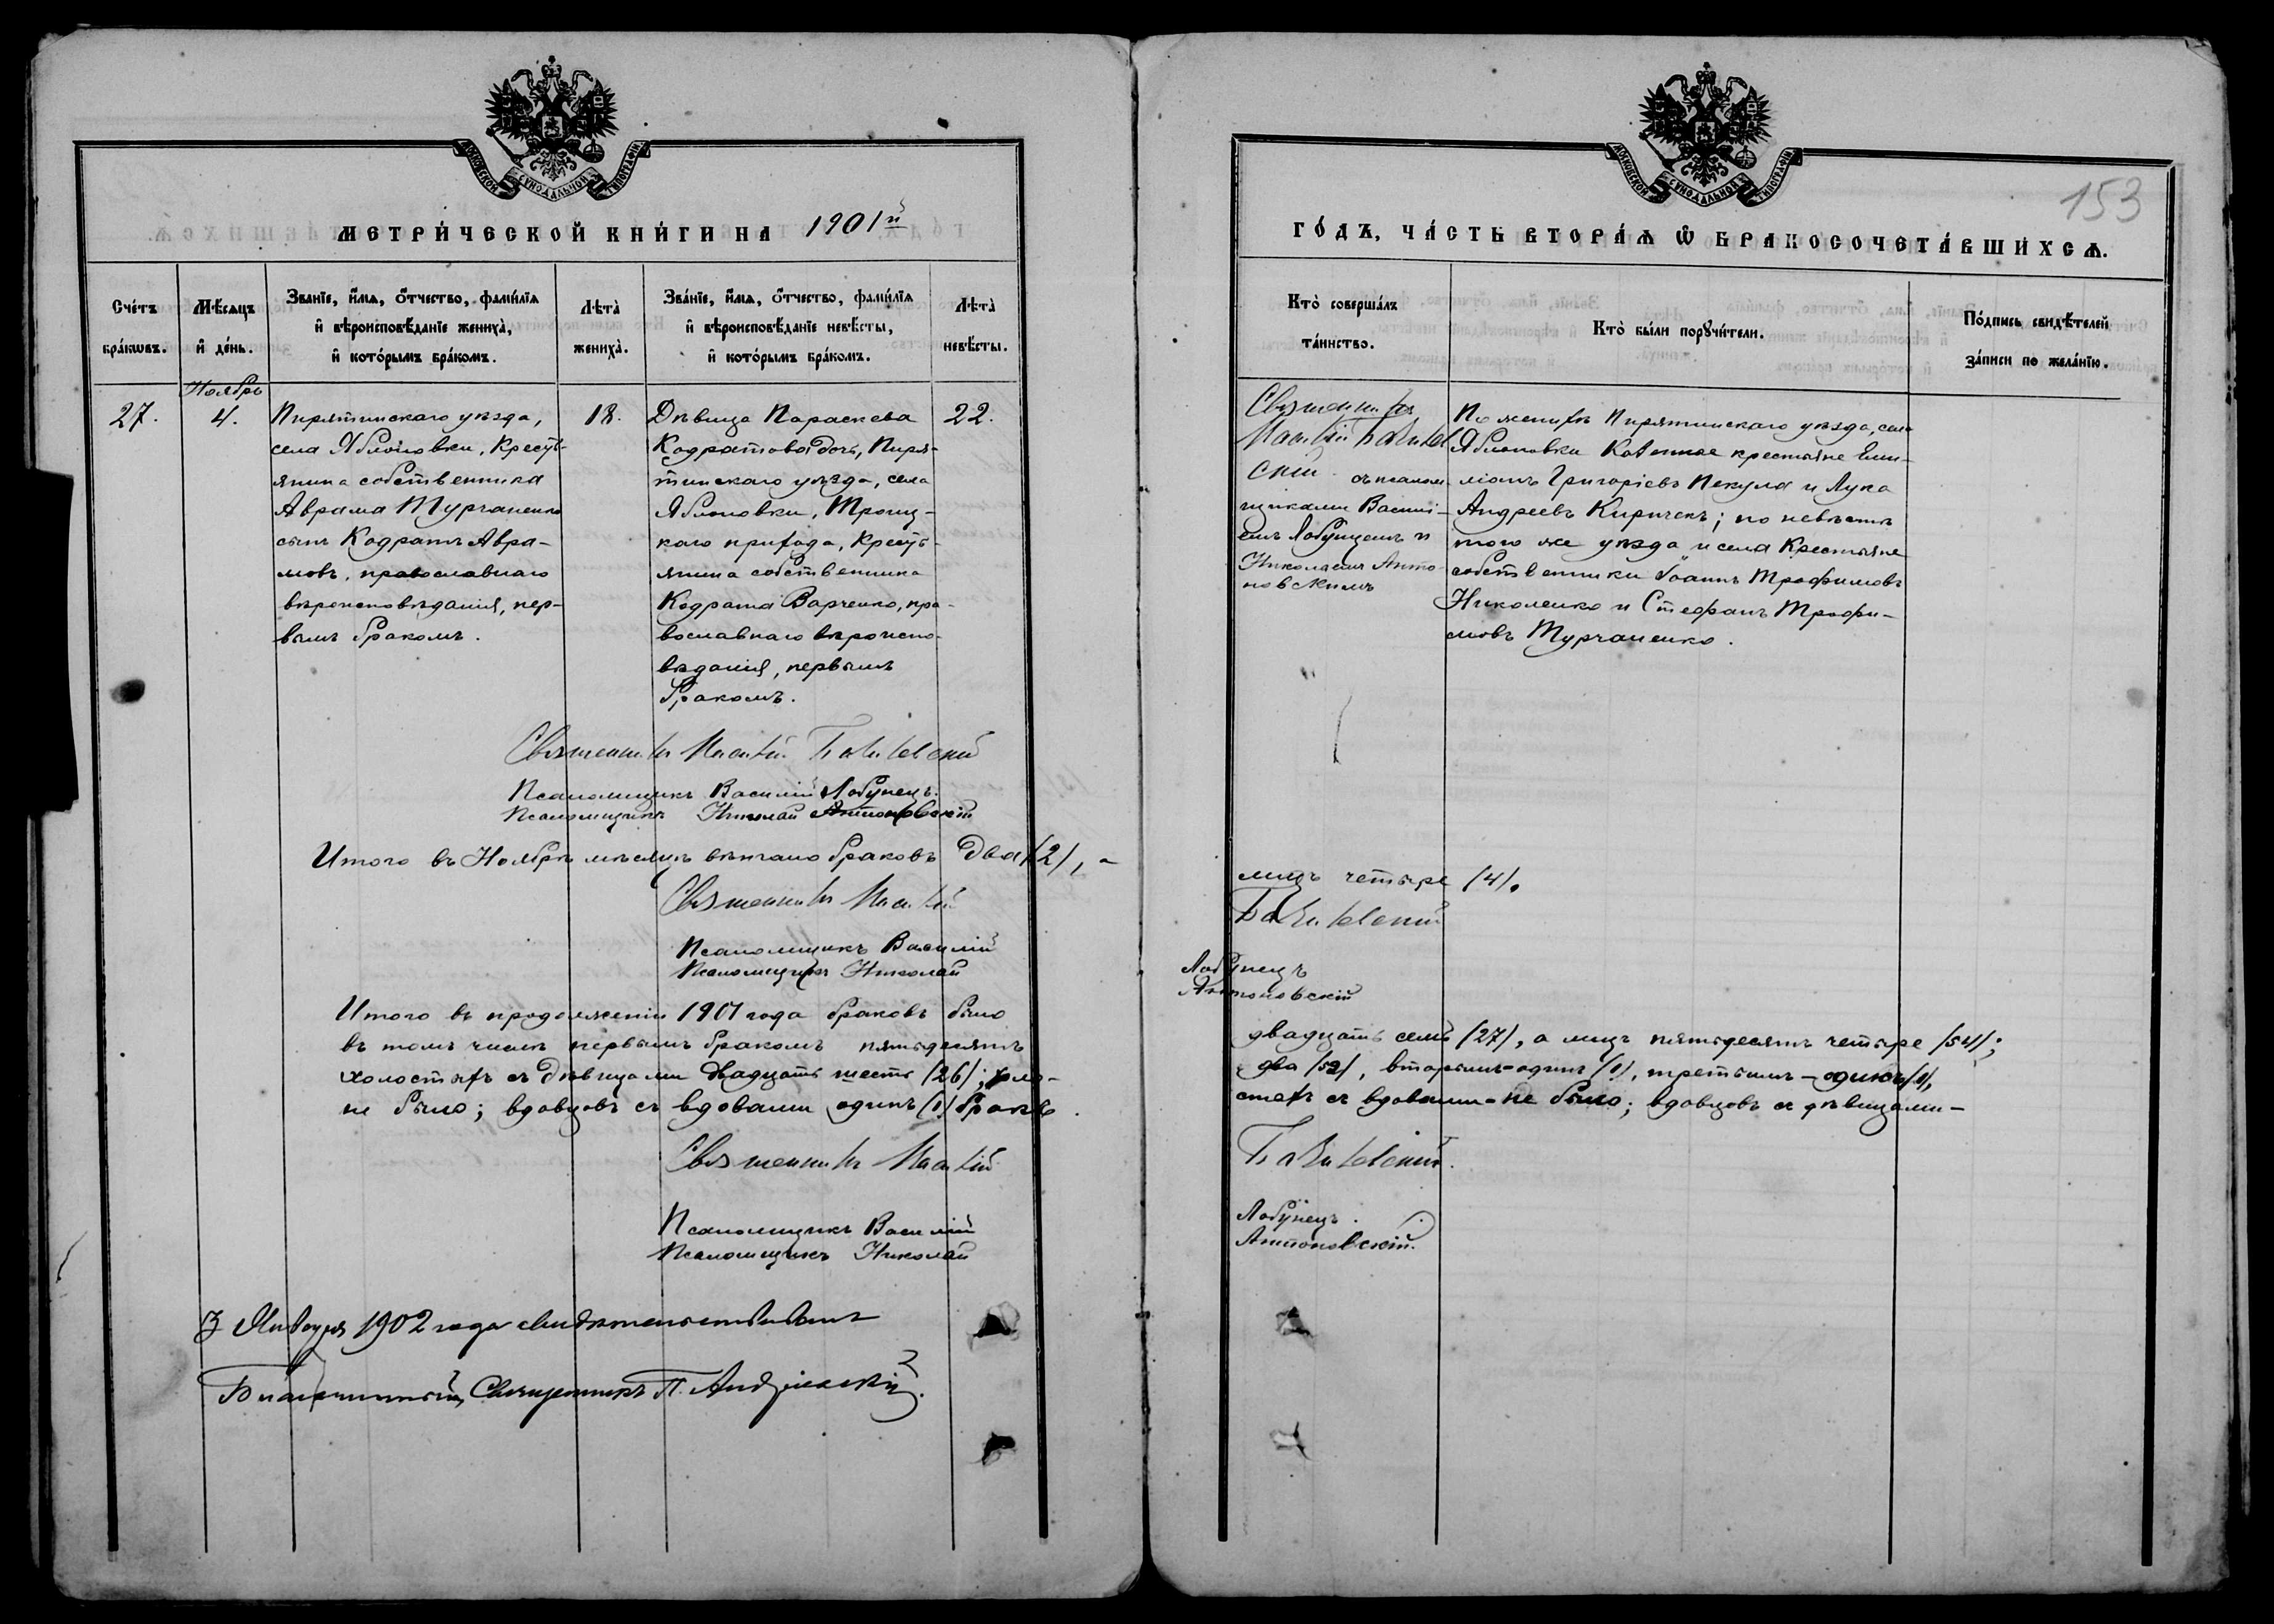 МОСКОВСКОЙ СѴНОДАЛЬНОЙ ТИПОГРАФІИ
МЕТРИ́ЧЕСКОЙ КНИ́ГИ НА 1901й
Сче́тъ бра́ковъ.
Мѣ́сяцъ и҆ де́нь.
Зва́нїе, и҆́мѧ, ѻ҆́тчество, фами́лїѧ
и҆ вѣроисповѣ́данїе жениха̀,
и҆ кото́рымъ бра́комъ.
Лѣта̀ жениха̀.
Зва́нїе, и҆́мѧ, ѻ҆́тчество, фами́лїѧ
и҆ вѣроисповѣ́данїе невѣ́сты,
и҆ кото́рымъ бра́комъ.
Лѣта̀ невѣ́сты.
Ноябрь
27.
4.
Пирятинскаго уѣзда,
села Яблоновки, Кресть-
янина собственника
Аврама Турчаненко
сынъ Кодратъ Авра-
мовъ, православнаго
вѣроисповѣданія, пер-
вымъ бракомъ.
18.
Дѣвица Параскева
Кодратова дочь, Пиря-
тинскаго уѣзда, села
Яблоновки, Троиц-
каго прихода, Кресть-
янина собственника
Кодрата Варченко, пра-
вославнаго вѣроиспо-
вѣданія, первымъ
бракомъ.
22.
Священникъ
Псаломщикъ Василій Лобунецъ.
Псаломщикъ Николай Антоновскій
Итого въ Ноябрѣ мѣсяцѣ вѣнчано браковъ два (2), -
Священникъ
Псаломщикъ Василій
Псаломщикъ Николай
Итого въ продолженіи 1901 года браковъ было
въ томъ числѣ первымъ бракомъ пятьдесятъ
холостыхъ съ дѣвицами двадцать шесть (26); холо-
не было; вдовцовъ съ вдовами одинъ (1) бракъ.
Священникъ
Псаломщикъ Василій
Псаломщикъ Николай
Января 1902 года свидѣтельствовалъ
Благочинный, Священникъ П.
МОСКОВСКОЙ СѴНОДАЛЬНОЙ ТИПОГРАФІИ
153
ГО́ДЪ, ЧА́СТЬ ВТОРА́Ѧ Ѡ҆ БРАКОСОЧЕТА́ВШИХСѦ.
Кто̀ соверша́лъ
та́инство.
Кто̀ бы́ли порꙋчи́тели.
По́дпись свидѣ́телей
за́писи по жела́нїю.
Священникъ
съ псалом-
щиками Василі-
емъ Лобунцемъ и
Николаемъ Анто-
новскимъ
По женихѣ Пирятинскаго уѣзда, села
Яблоновки Казенные крестьяне Еми-
ліанъ Григоріевъ Пекула и Лука
Андреевъ Киричекъ; по невѣстѣ
того же уѣзда и села Крестьяне
собственники Іоаннъ Трофимовъ
Николенко и Стефанъ Трофи-
мовъ Турчаненко.
лицъ четыре (4).
Лобунецъ
Антоновскій
двадцать семь (27), а лицъ пятьдесятъ четыре (54);
два (52), вторымъ-одинъ (1), третьимъ-одинъ (1),
стыхъ съ вдовами-не было; вдовцовъ съ дѣвицами-
Лобунецъ.
Антоновскій.